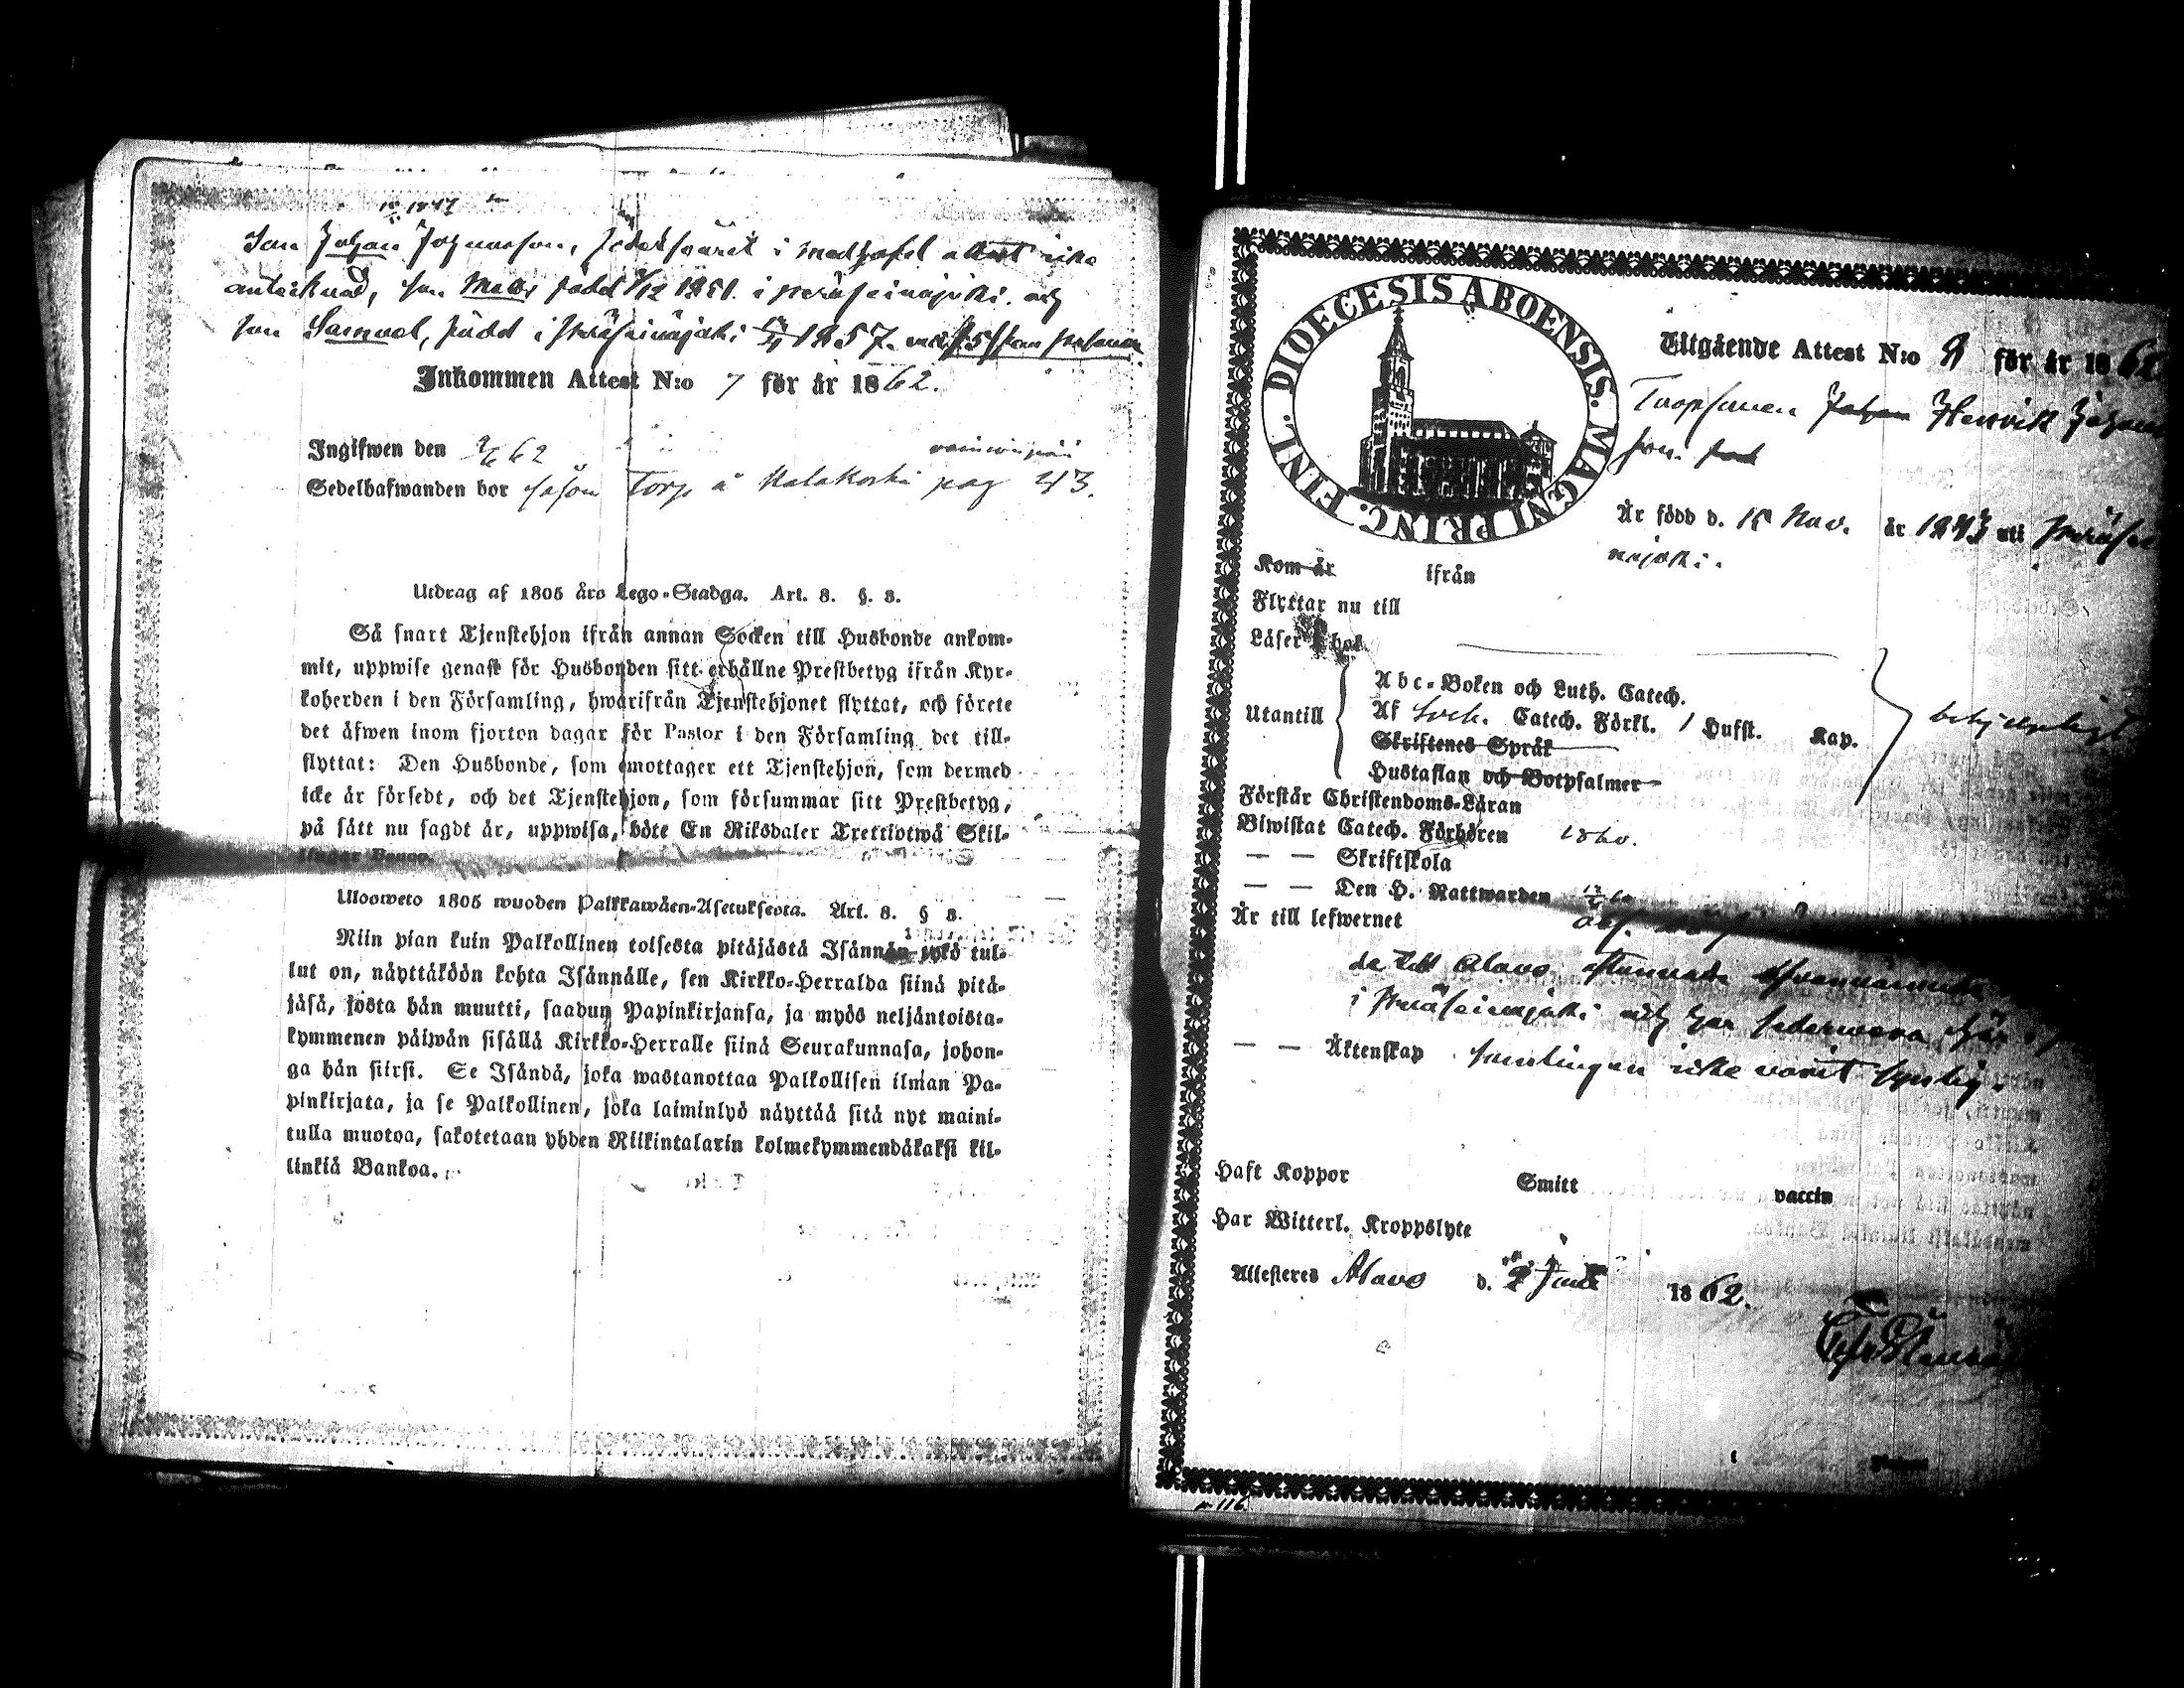 Son Johan Johansson, i icke
antecknad, son Matts född 1851. i Peräseinäjoki. och
son Samuel, född i Peräseinäjoki 1857.
Inkommen Attest N:o 7 för år 1862.
Ingifwen den 62
Sedelhafwanden bor såson Torp å Kalakoski pag 43.
Utdrag af 1805 års Lego-Stadga. Art. 8. §. 8.
Så snart Tjenstehjon ifrån annan Socken till Husbonde ankom-
mit, uppwise genast för Husbonden sitt erhållne Prestbetyg ifrån Kyr-
koherden i den Församling, hwarifrån Tjenstehjonet flyttat, och förete
det äfwen inom fjorton dagar för Pastor i den Församling det till-
flyttat: Den Husbonde, som emottager ett Tjenstehjon, som dermed
icke är försedt, och det Tjenstehjon, som försummar sitt Prestbetyg,
på sätt nu sagdt är, uppwisa, böte En Riksdaler Trettiotwå Skil-
lingar Banco.
Ulosweto 1805 wuoden Palkkawäen-Asetuksesta. Art. 8. § 8.
Niin pian kuin Palkollinen toisesta pitäjästä Isännän tykö tul-
lut on, näyttäköön kohta Isännälle, sen Kirkko-Herralda siinä pitä-
jäsä, josta hän muutti, saadun Papinkirjansa, ja myös neljäntoista-
kymmenen päiwän sisällä Kirkko-Herralle siinä Seurakunnasa, johon-
ga hän siirsi. Se Isändä, joka wastanottaa Palkollisen ilman Pa-
pinkirjata, ja se Palkollinen, joka laiminlyö näyttää sitä nyt maini-
tulla muotoa, sakotetaan yhden Riikintalarin kolmekymmendäkaksi kil-
linkiä Bankoa.
DIOECESIS ABOENSIS. MAGNI PRINC. FINL.
Utgående Attest N:o 9 för år 1862
Torpsonen Johan Henrik Johans
son.
Är född d. 15 Nov. år 1843 uti Peräsei
näjoki.
Kom år ifrån
Flyttar nu till
Läser i bok
Utantill
Abc-Boken och Luth. Catech.
Af Catech. Förkl. 1 Hufst. Kap.
Skriftenes Språk
Hustaflan och Botpsalmer
behjelpligt
Förstår Christendoms-Läran
Biwistat Catech. Förhören 1860.
— — Skriftskola
— — Den H. Nattwarden
Är till lefwernet
Alavo
i Peräseinäjoki och har sedermera här i
— — Äktenskap samlingen icke varit synlig.
Haft Koppor Smitt vaccin
Har Witterl. Kroppslyte
Attesteres Alavo d. 2 Juni 1862.
116